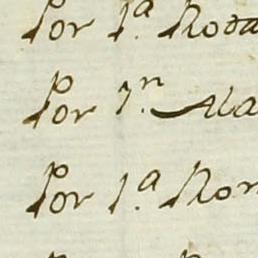 Por 1ª Roda
Por 1.n Ala
Por 1.ª Ron